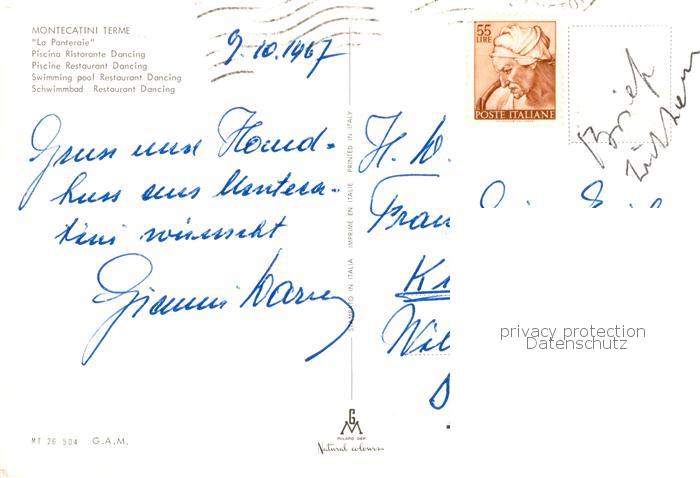 MONTECATINI TERME
"La Panteraie"
Piscina Ristorante Dancing
Piscine Restaurant Dancing
Swimming pool Restaurant Dancing
Schwimmbad Restaurant Dancing
9.10.1967
Gruss und Hand-
kuss aus Monteca-
tini wünscht
Gianni
STAMPATO IN ITALIA IMPRIMÉ EN ITALIE PRINTED IN ITALY
55
LIRE
POSTE ITALIANE
Brief
H. W.
Frau
privacy protection
Datenschutz
MT 26 504 G.A.M.
GM
MILANO DEP.
Natural colours